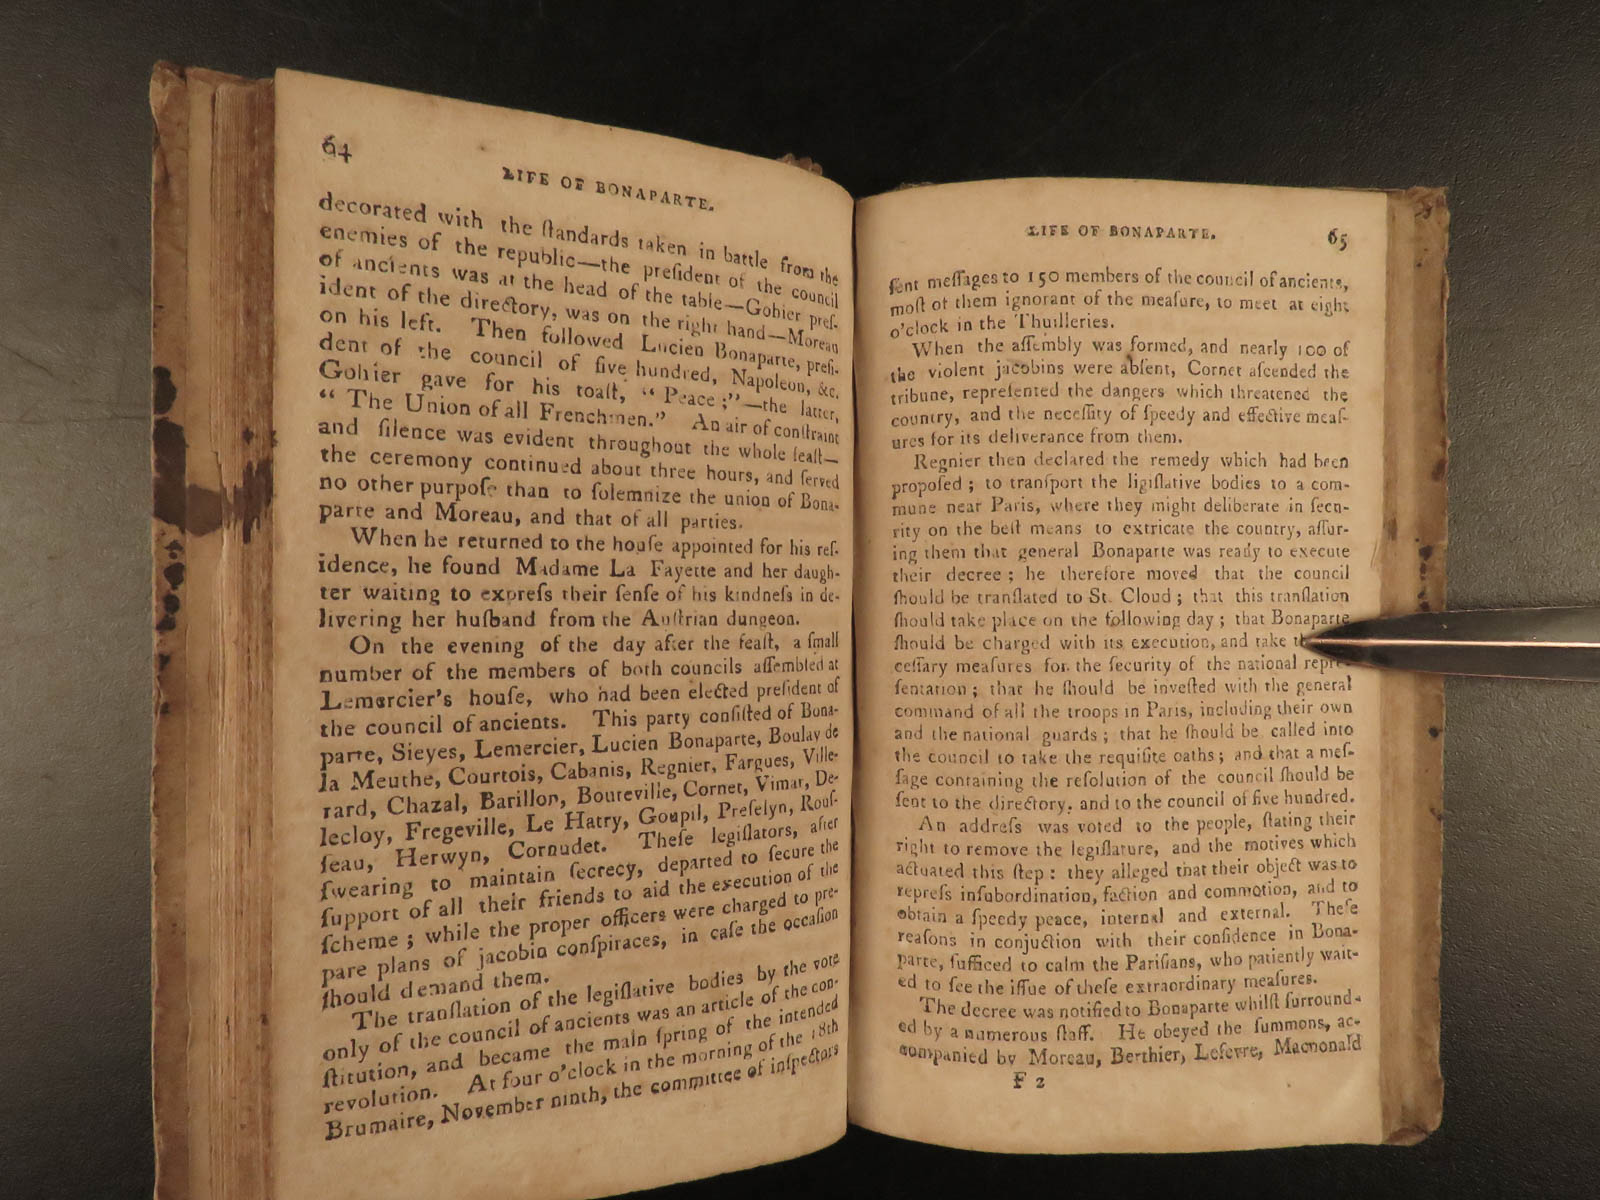 64
LIFE OF BONAPARTE.
decorated with the ſtandards taken in battle from the
enemies of the republic—the preſident of the council
of ancients was at the head of the table—Gohier preſ-
ident of the directory, was on the right hand—Moreau
on his left. Then followed Lucien Bonaparte, preſi-
dent of the council of five hundred, Napoleon, &c.
Gohier gave for his toaſt, “ Peace ;”—the latter,
“ The Union of all Frenchmen.” An air of conſtraint
and ſilence was evident throughout the whole feaſt—
the ceremony continued about three hours, and ſerved
no other purpoſe than to ſolemnize the union of Bona-
parte and Moreau, and that of all parties.
When he returned to the houſe appointed for his reſ-
idence, he found Madame La Fayette and her daugh-
ter waiting to expreſs their ſenſe of his kindneſs in de-
livering her huſband from the Auſtrian dungeon.
On the evening of the day after the feaſt, a ſmall
number of the members of both councils aſſembled at
Lemercier's houſe, who had been elected preſident of
the council of ancients. This party conſiſted of Bona-
parte, Sieyes, Lemercier, Lucien Bonaparte, Boulay de
la Meuthe, Courtois, Cabanis, Regnier, Fargues, Ville-
rard, Chazal, Barillon, Bouteville, Cornet, Vimar, De-
lecloy, Fregeville, Le Hatry, Goupil, Preſelyn, Rouſ-
ſeau, Herwyn, Cornudet. Theſe legiſlators, after
ſwearing to maintain ſecrecy, departed to ſecure the
ſupport of all their friends to aid the execution of the
ſcheme ; while the proper officers were charged to pre-
pare plans of jacobin conſpiraces, in caſe the occaſion
ſhould demand them.
The tranſlation of the legiſlative bodies by the vote
only of the council of ancients was an article of the con-
ſtitution, and became the main ſpring of the intended
revolution. At four o'clock in the morning of the 18th
Brumaire, November ninth, the committee of inſpectors
LIFE OF BONAPARTE.
65
ſent meſſages to 150 members of the council of ancients,
moſt of them ignorant of the meaſure, to meet at eight
o'clock in the Thuilleries.
When the aſſembly was formed, and nearly 100 of
the violent jacobins were abſent, Cornet aſcended the
tribune, repreſented the dangers which threatened the
country, and the neceſſity of ſpeedy and effective meaſ-
ures for its deliverance from them.
Regnier then declared the remedy which had been
propoſed ; to tranſport the ligiſlative bodies to a com-
mune near Paris, where they might deliberate in ſecu-
rity on the beſt means to extricate the country, aſſur-
ing them that general Bonaparte was ready to execute
their decree ; he therefore moved that the council
ſhould be tranſlated to St. Cloud ; that this tranſlation
ſhould take place on the following day ; that Bonaparte
ſhould be charged with its execution, and take
ceſſary meaſures for the ſecurity of the national repre-
ſentation ; that he ſhould be inveſted with the general
command of all the troops in Paris, including their own
and the national guards ; that he ſhould be called into
the council to take the requiſite oaths ; and that a meſ-
ſage containing the reſolution of the council ſhould be
ſent to the directory, and to the council of five hundred.
An addreſs was voted to the people, ſtating their
right to remove the legiſlature, and the motives which
actuated this ſtep : they alleged that their object was to
repreſs inſubordination, faction and commotion, and to
obtain a ſpeedy peace, internal and external. Theſe
reaſons in conjuction with their confidence in Bona-
parte, ſufficed to calm the Pariſians, who patiently wait-
ed to ſee the iſſue of theſe extraordinary meaſures.
The decree was notified to Bonaparte whilſt ſurround-
ed by a numerous ſtaff. He obeyed the ſummons, ac-
companied by Moreau, Berthier, Lefevre, Macnonald
F 2